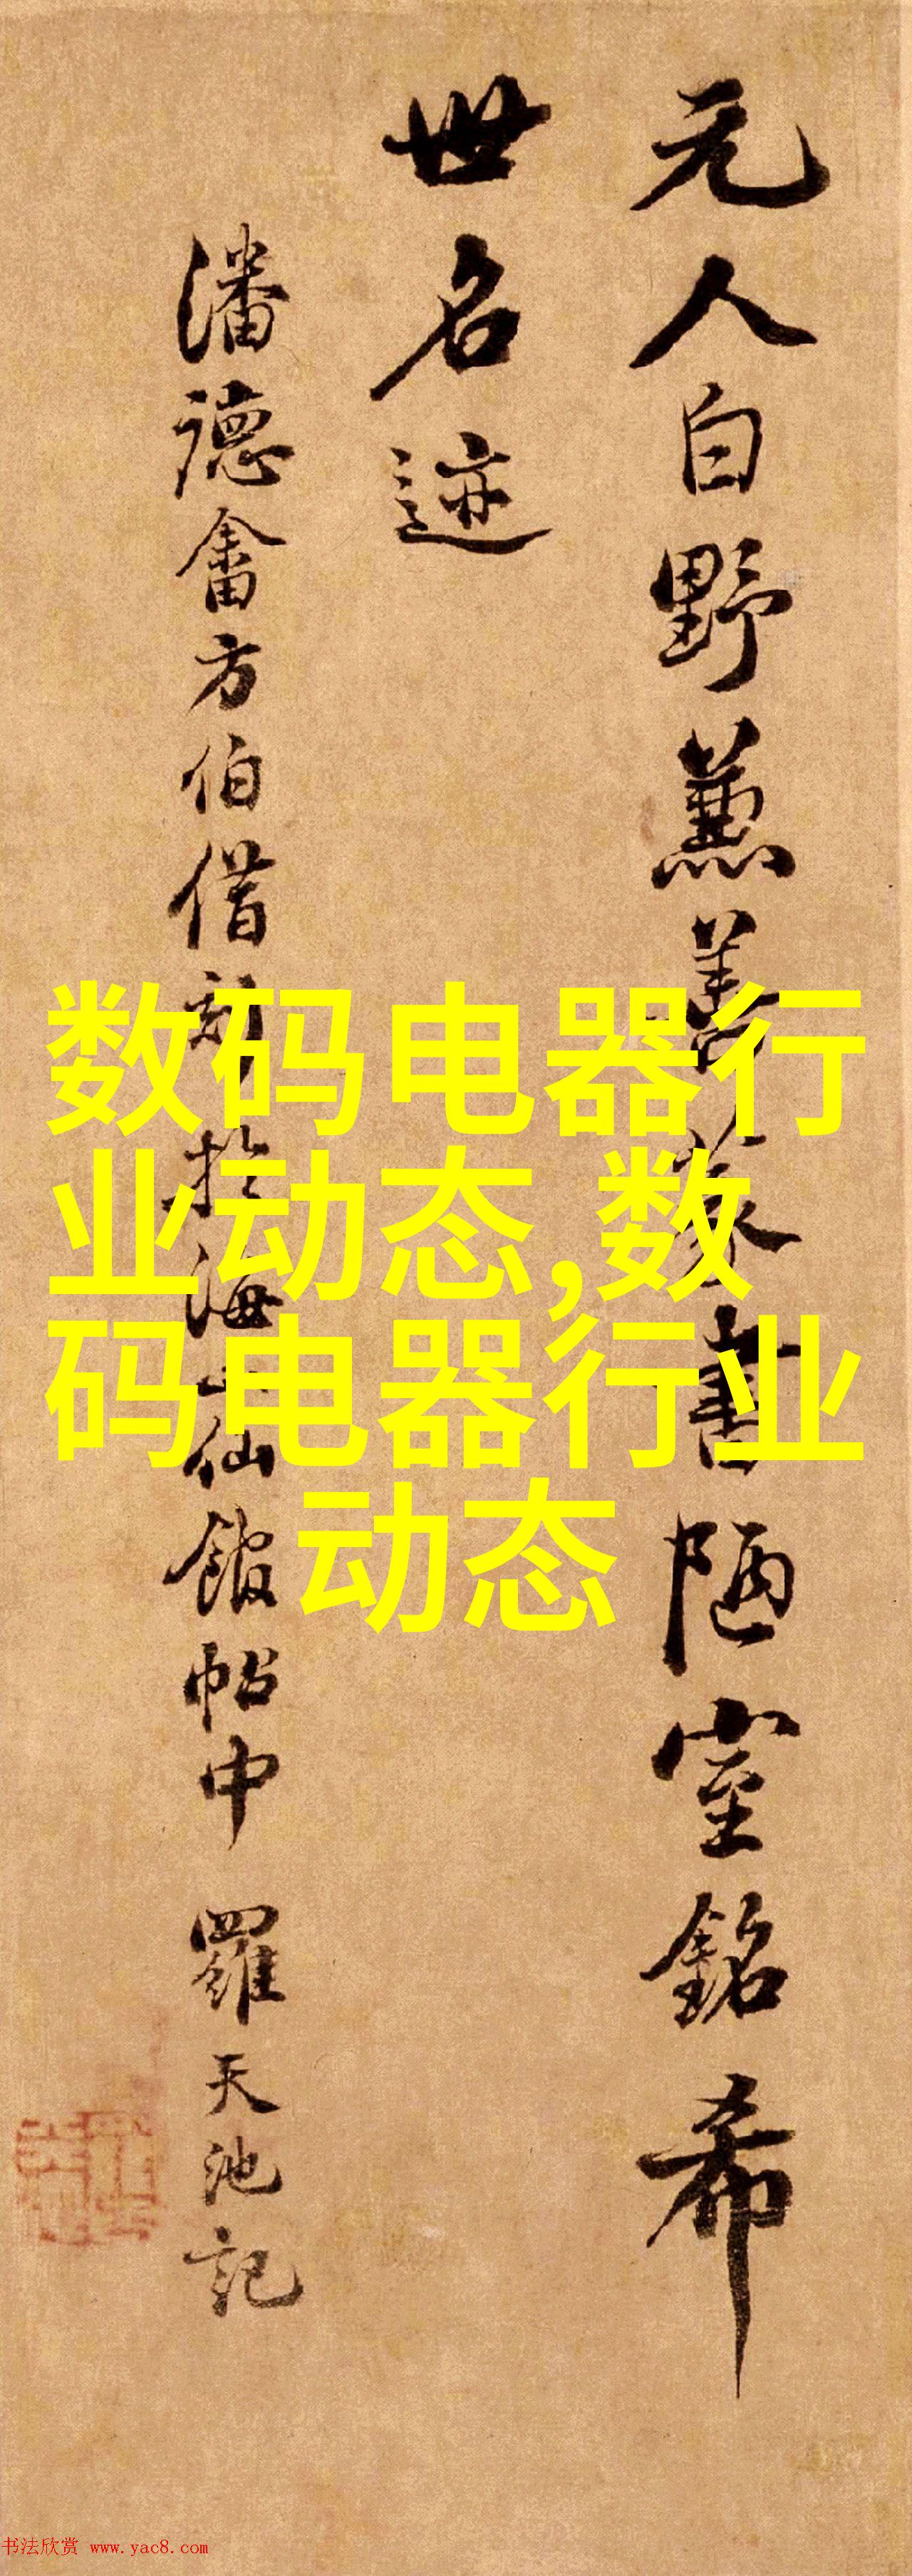 元人白野兼善篆書陋室銘希
世名迹
潘德畬方伯借刻於海山仙館帖中 羅天池記
数码电器行
业动态,数
码电器行业
动态
书法欣赏 www.yac8.com